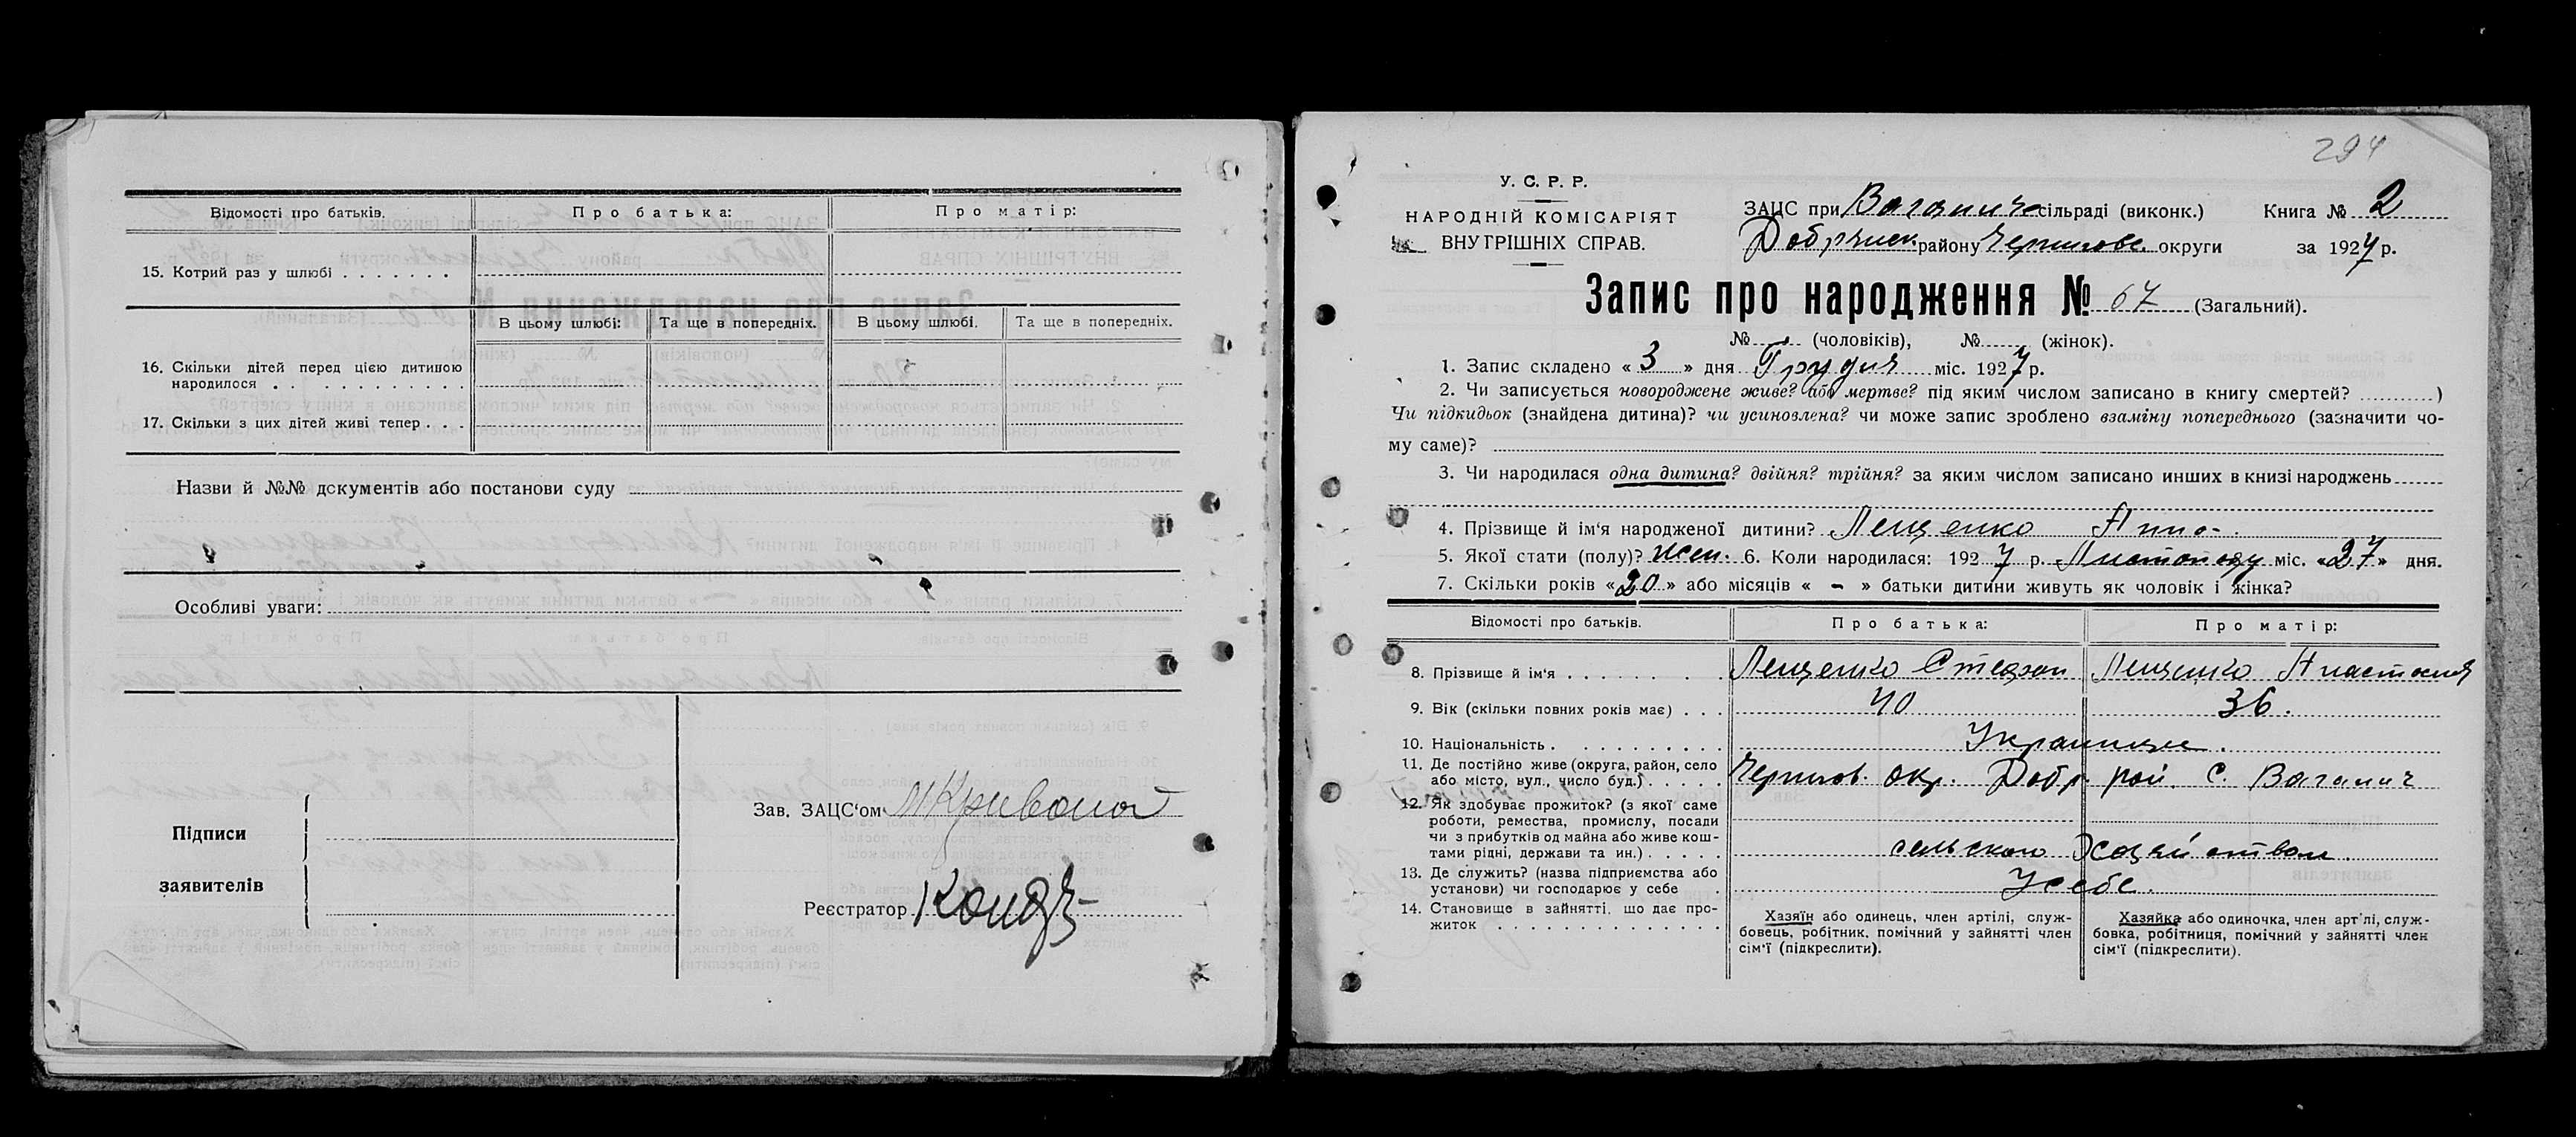 Відомості про батьків.
Про батька:
Про матір:
15. Котрий раз у шлюбі
В цьому шлюбі:
Та ще в попередніх.
В цьому шлюбі.
Та ще в попередніх.
16. Скільки дітей перед цією дитиною
народилося
17. Скільки з цих дітей живі тепер
Назви й №№ документів або постанови суду
Особливі уваги:
Підписи
заявителів
Зав. ЗАЦС'ом
Реєстратор
294
У. С. Р. Р.
НАРОДНІЙ КОМІСАРІЯТ
ВНУТРІШНІХ СПРАВ.
ЗАЦС при Ваганич сільраді (виконк.) Книга № 2
Добрянск. району Чернигове. округи за 1927 р.
Запис про народження № 67 (Загальний).
№ (чоловіків), № (жінок).
1. Запис складено « 3 » дня Грудня міс. 1927 р.
2. Чи записується новороджене живе? або мертве? під яким числом записано в книгу смертей? )
Чи підкидьок (знайдена дитина)? чи усиновлена? чи може запис зроблено взаміну попереднього (зазначити чо-
му саме)?
3. Чи народилася одна дитина? двійня? трійня? за яким числом записано инших в книзі народжень
4. Прізвище й ім'я народженої дитини? Лещенко Анна.
5. Якої стати (полу)? жен. 6. Коли народилася: 1927 р. Листопаду міс. «27» дня.
7. Скільки років «20» або місяців « - » батьки дитини живуть як чоловік і жінка?
Відомості про батьків.
Про батька:
Про матір:
8. Прізвище й ім'я Лещенко Стефан Лещенко Анастасия
9. Вік (скільки повних років має) 40 36.
10. Національність. Украинцы.
11. Де постійно живе (округа, район, село
або місто, вул., число буд.) Чернигов. окр. Добр. рай. с. Ваганич
12. Як здобуває прожиток? (з якої саме
роботи, ремества, промислу, посади
чи з прибутків од майна або живе кош-
тами рідні, держави та ин.) сельским хозяйством.
13. Де служить? (назва підприємства або
установи) чи господарює у себе У себе.
14. Становище в зайнятті, що дає про-
житок
Хазяїн або одинець, член артілі, служ-
бовець, робітник, помічний у зайнятті член
сім'ї (підкреслити).
Хазяйка або одиночка, член арт'лі, служ-
бовка, робітниця, помічний у зайнятті член
сім'ї (підкреслити).